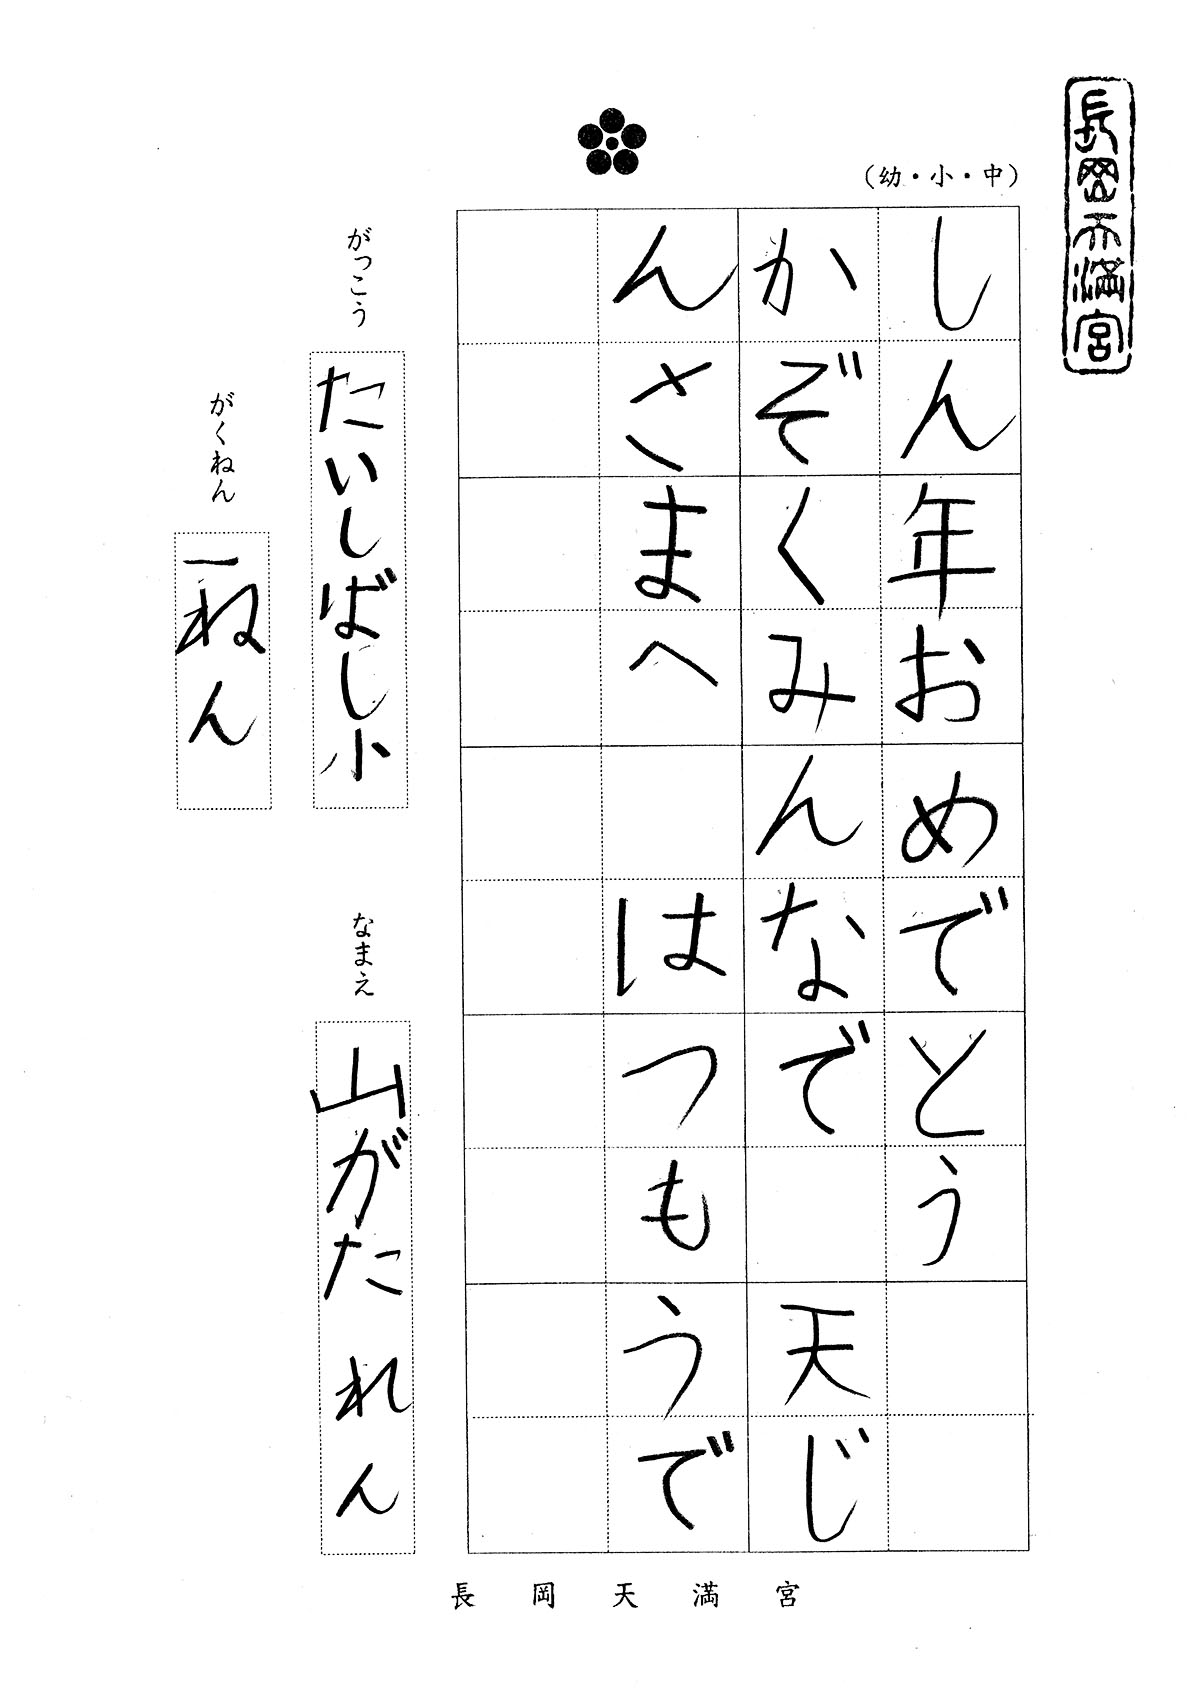 長岡天満宮
（幼・小・中）
しん年おめでとう
かぞくみんなで　天じ
んさまへ　はつもうで
がっこう
たいしばし小
がくねん
一ねん
なまえ
山がた　れん
長岡天満宮